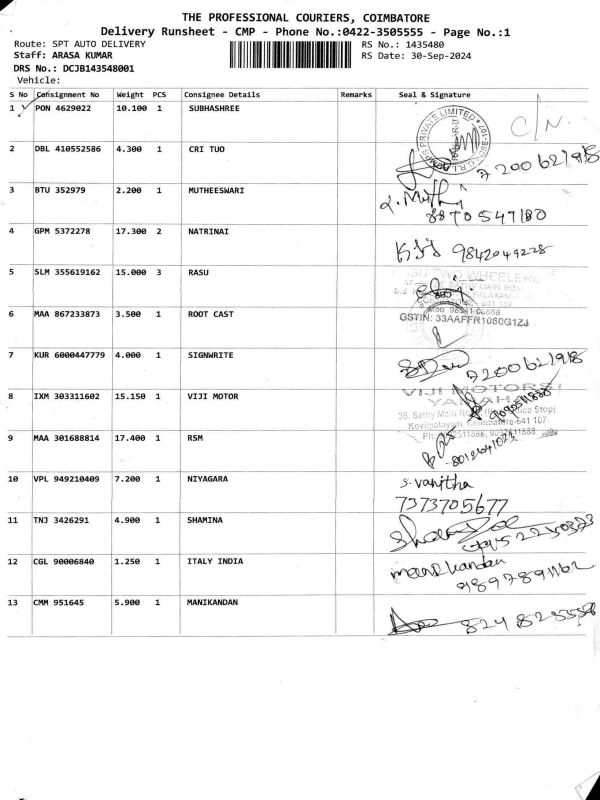 THE PROFESSIONAL COURIERS, COIMBATORE
Delivery Runsheet - CMP - Phone No.:0422-3505555 - Page No.:1
Route: SPT AUTO DELIVERY RS No.: 1435480
Staff: ARASA KUMAR RS Date: 30-Sep-2024
DRS No.: DCJB143548001
Vehicle:
S No Consignment No Weight PCS Consignee Details Remarks Seal & Signature
1 PON 4629022 10.100 1 SUBHASHREE C/N.
2 DBL 410552586 4.300 1 CRI TUO 7200621918
3 BTU 352979 2.200 1 MUTHEESWARI
8870547180
4 GPM 5372278 17.300 2 NATRINAI 9842049228
5 SLM 355619162 15.000 3 RASU
6 MAA 867233873 3.500 1 ROOT CAST GSTIN: 33AAFFR1080G1ZJ
7 KUR 6000447779 4.000 1 SIGNWRITE 7200621918
8 IXM 303311602 15.150 1 VIJI MOTOR VIJI MOTORS
YAMAHA
9 MAA 301688814 17.400 1 RSM
10 VPL 949210409 7.200 1 NIYAGARA S. Vanitha
7373705677
11 TNJ 3426291 4.900 1 SHAMINA
12 CGL 90006840 1.250 1 ITALY INDIA manikandan
97897891162
13 CMM 951645 5.900 1 MANIKANDAN 8248235558